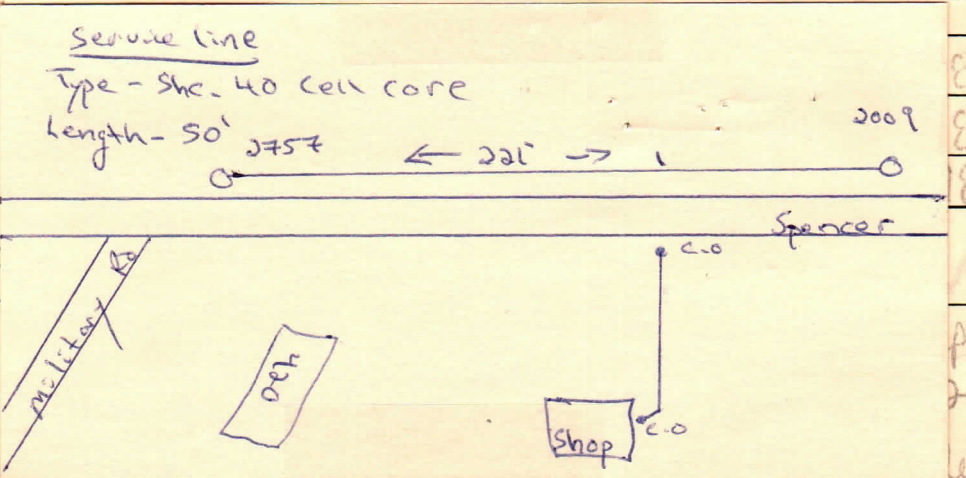 Service line
Type - Shc. 40 Cell core
Length - 50'
2757
← 221' →
2009
Spencer
C.O
Military Rd
Shop
C.O